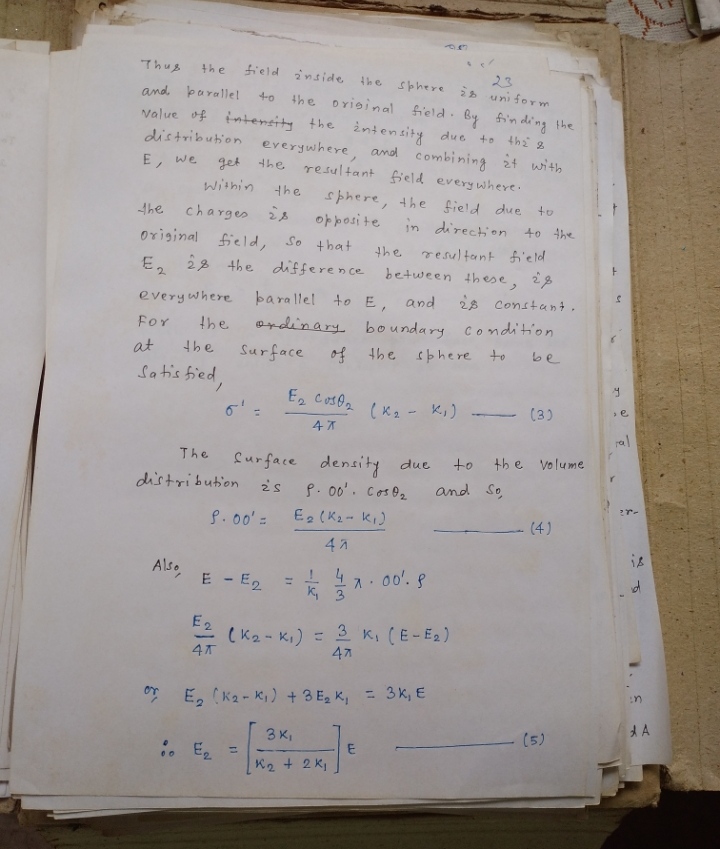 23
Thus the field inside the sphere is uniform
and parallel to the original field. By finding the
value of intensity the intensity due to this
distribution everywhere, and combining it with
E, we get the resultant field everywhere.
Within the sphere, the field due to
the charges is opposite in direction to the
original field, so that the resultant field
E₂ is the difference between these, is
everywhere parallel to E, and is constant.
For the ordinary boundary condition
at the surface of the sphere to be
satisfied,
σ' = E₂ cosθ₂ / 4π (K₂ - K₁) —— (3)
The surface density due to the volume
distribution is ρ. OO'. cosθ₂ and so,
ρ. OO' = E₂ (K₂ - K₁) / 4π —— (4)
Also, E - E₂ = 1/K₁ 4/3 π. OO'. ρ
E₂/4π (K₂ - K₁) = 3/4π K₁ (E - E₂)
or, E₂ (K₂ - K₁) + 3E₂K₁ = 3K₁E
∴ E₂ = [3K₁ / K₂ + 2K₁] E —— (5)